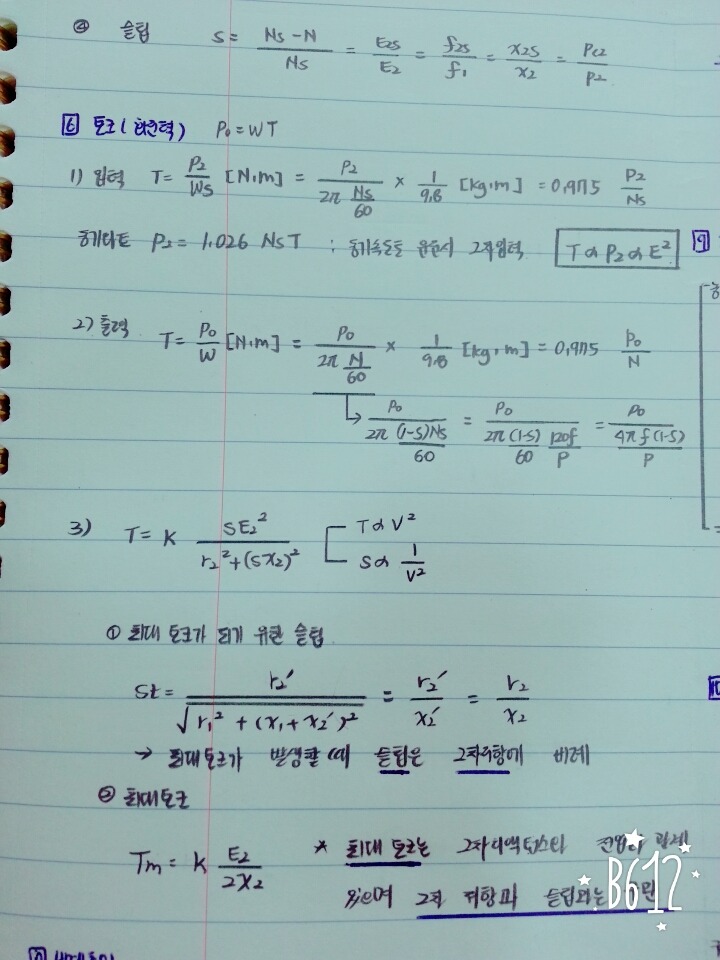 ④ 슬립 S = (Ns - N)/Ns = E2S/E2 = f2S/f1 = x2S/x2 = Pc2/P2
6 토크(회전력) Po = WT
1) 입력 T = P2/Ws [N·m] = P2/(2π Ns/60) × 1/9.8 [kg·m] = 0.975 P2/Ns
동기와트 P2 = 1.026 Ns T : 동기속도로 운전시 2차입력 T ∝ P2 ∝ E²
9
2) 출력 T = Po/W [N·m] = Po/(2π N/60) × 1/9.8 [kg·m] = 0.975 Po/N
↳ Po/(2π (1-S)Ns/60) = Po/(2π (1-S)/60 120f/P) = Po/(4πf(1-S)/P)
3) T = K SE2²/(r2² + (Sx2)²) T ∝ V²
S ∝ 1/V²
① 최대 토크가 되기 위한 슬립
St = r2′/√(r1² + (x1 + x2′)²) = r2′/x2′ = r2/x2
→ 최대토크가 발생할 때 슬립은 2차저항에 비례
② 최대토크
Tm = K E2/2x2 * 최대 토크는 2차리액턴스와 전압과 관계
있으며 2차 저항과 슬립과는
B612